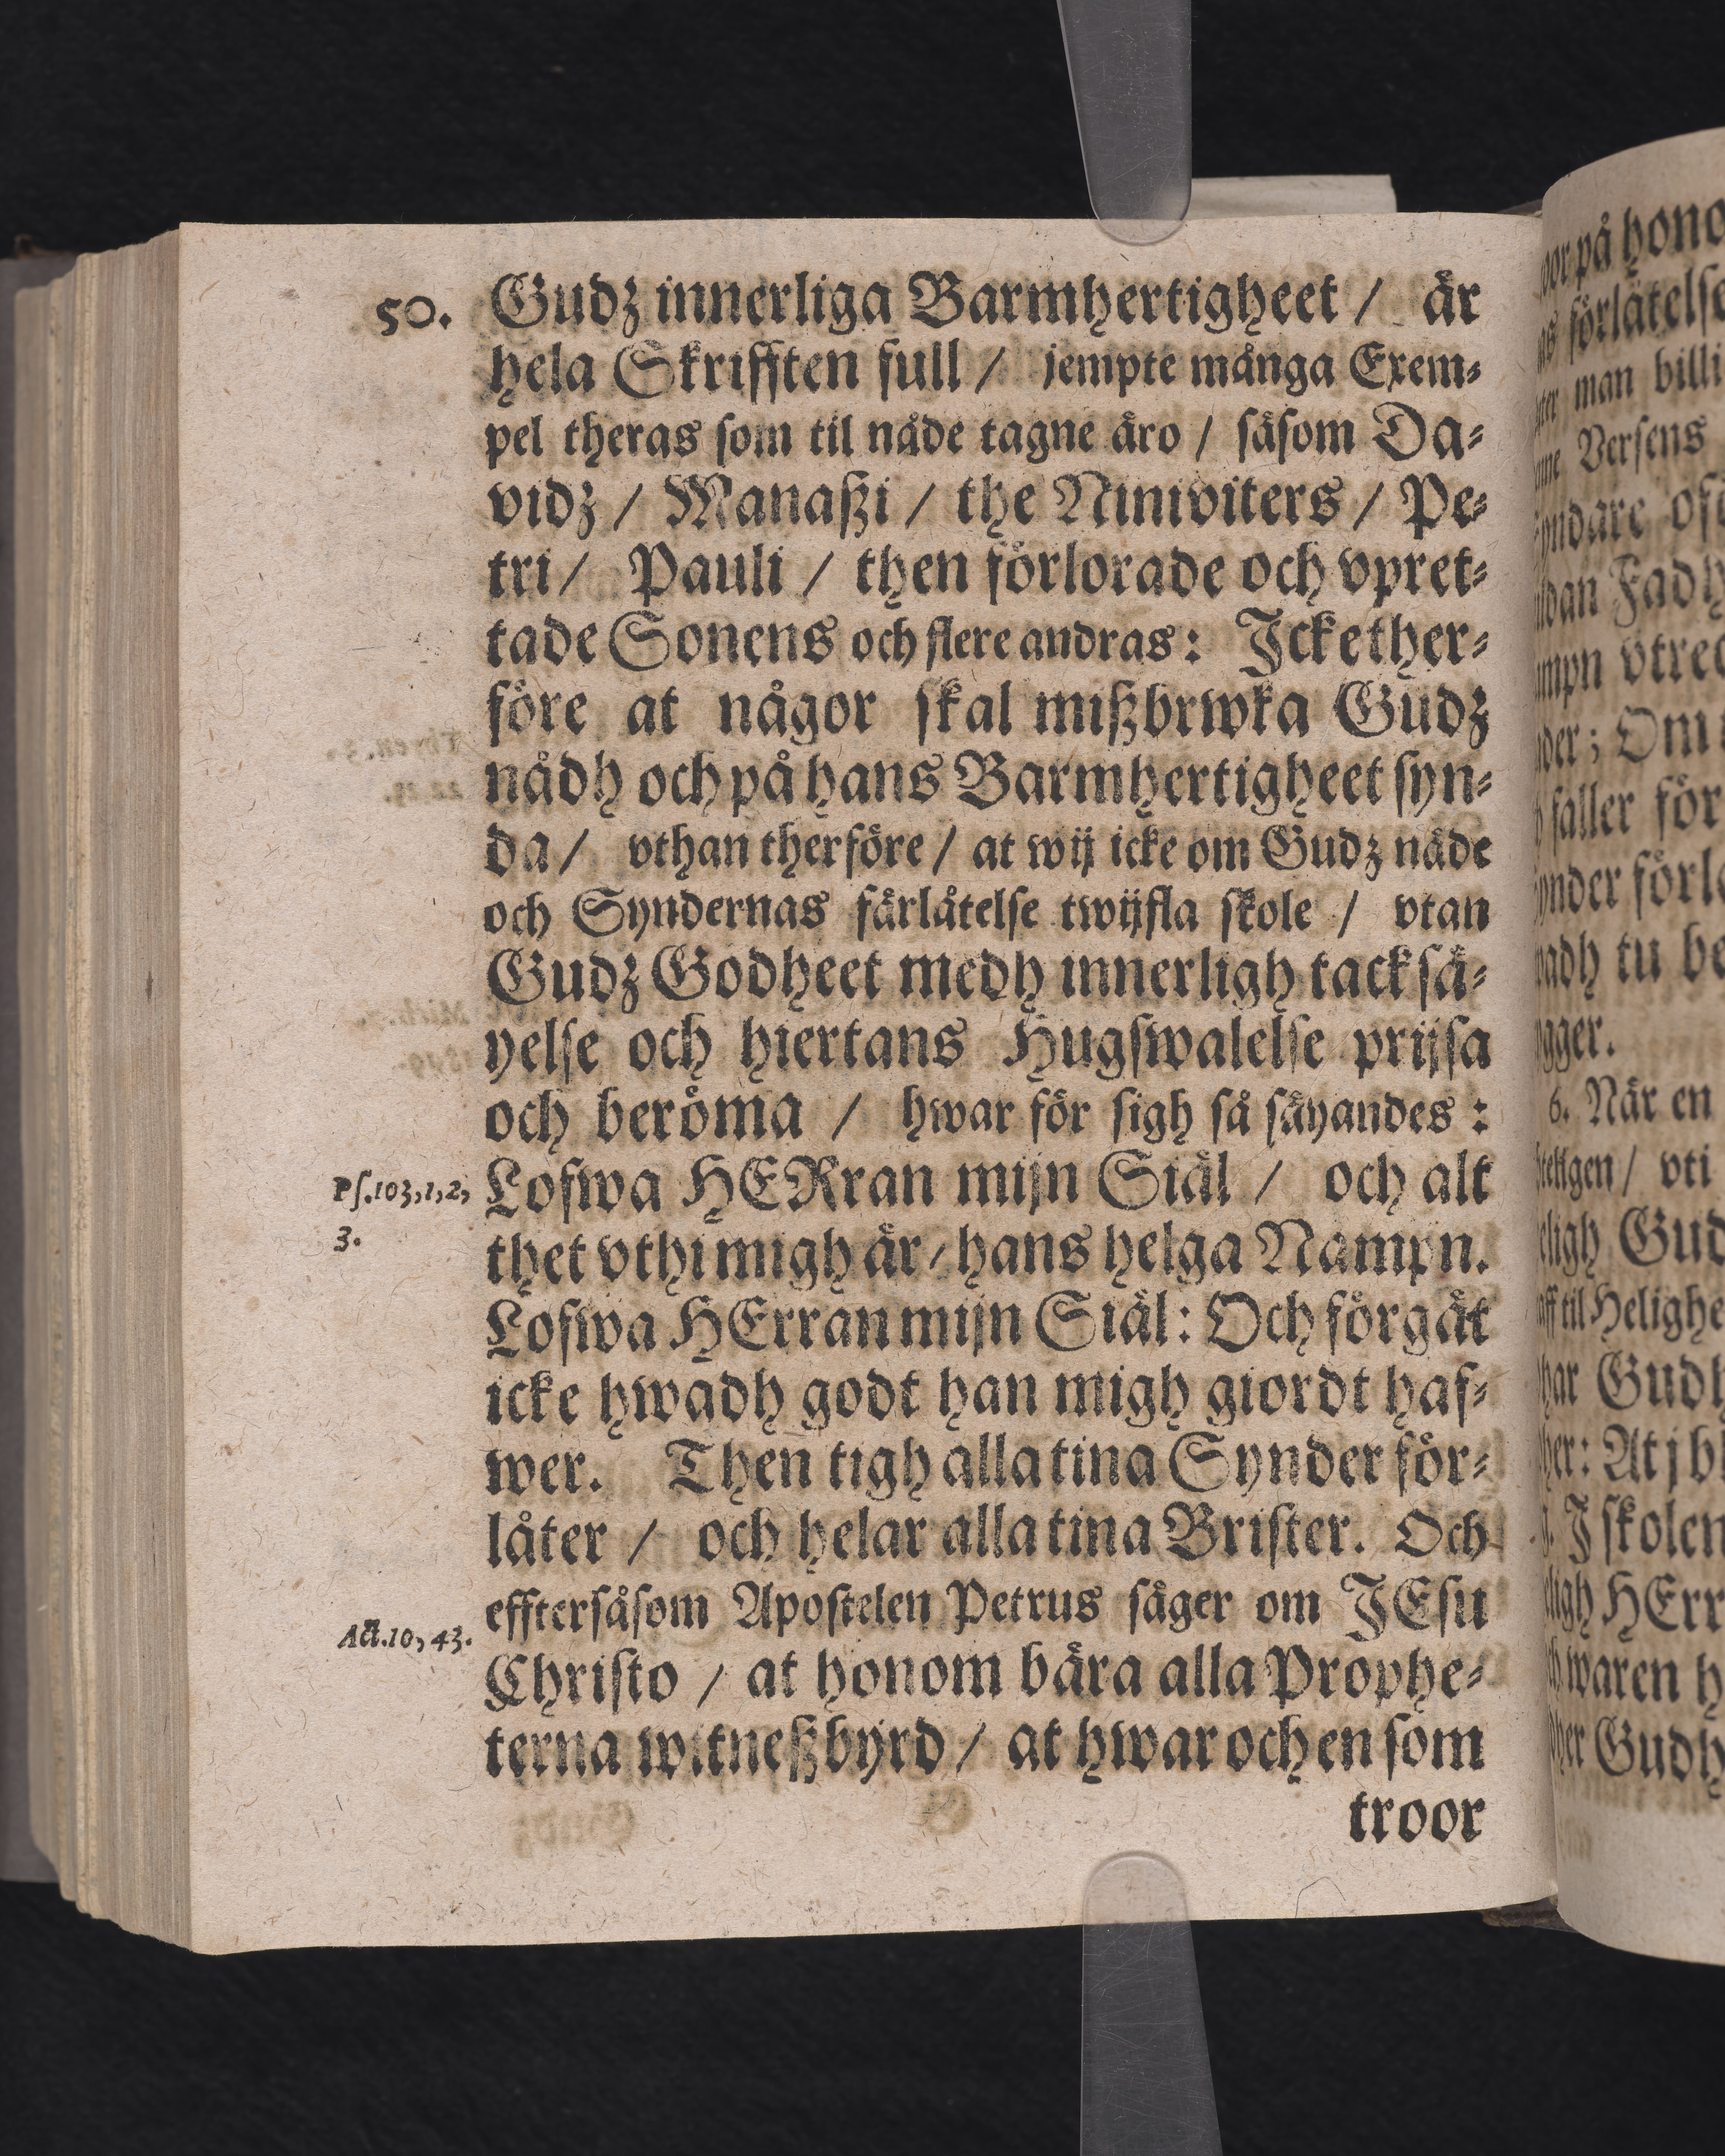 50.
Gudz innerliga Barmhertigheet / är
hela Skrifften full / jempte många Exem⸗
pel theras som til nåde tagne äro / såsom Da⸗
vidz / Manaßi / the Niniviters / Pe⸗
tri / Pauli / then förlorade och vpret⸗
tade Sonens och flere andras: Icke ther⸗
före at någor skal mißbrwka Gudz
nådh och på hans Barmhertigheet syn⸗
da / vthan therföre / at wij icke om Gudz nåde
och Syndernas färlåtelse twijfla skole / vtan
Gudz Godheet medh innerligh tacksä⸗
yelse och hiertans Hugswalelse prijsa
och beröma / hwar för sigh så säyandes:
Ps.103,1,2,
3.
Lofwa HERran mijn Siäl / och alt
thet vthi migh är / hans helga Nampn.
Lofwa HErran mijn Siäl: Och förgät
icke hwadh godt han migh giordt haf⸗
wer. Then tigh alla tina Synder för⸗
låter / och helar alla tina Brister. Och
efftersåsom Apostelen Petrus säger om JEsu
Act.10,43.
Christo / at honom bära alla Prophe⸗
terna witneßbyrd / at hwar och en som
troor
på hono
förlåtelse
man billi
Versens
Fadh
vtre
Om
faller för
förl
tu be
6. När en
vti
Gud
til Helighe
Gudh
At j bl
J skolen
HErr
waren h
Gudh